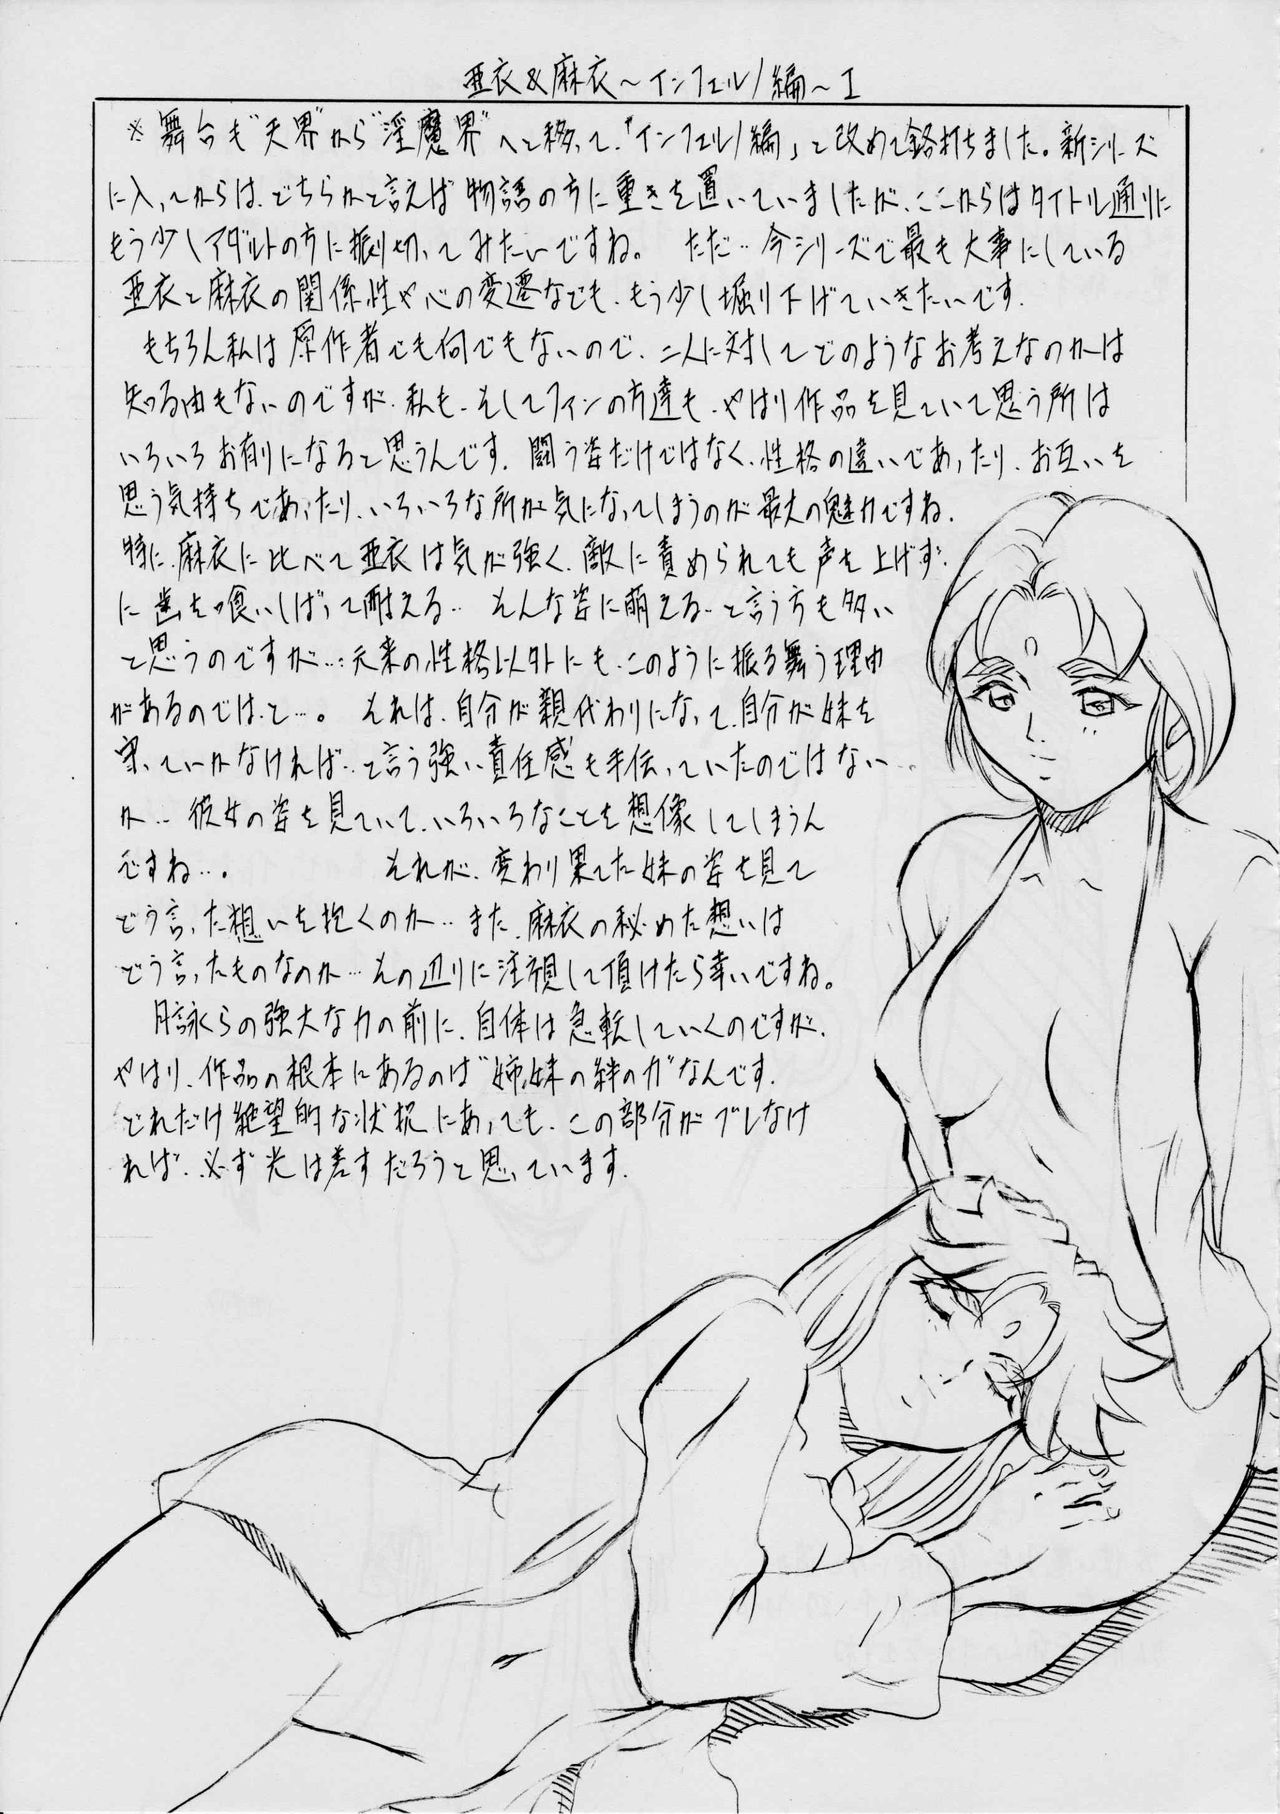 亜衣&麻衣~インフェルノ編~I
※舞台も"天界"から"淫魔界"へと移って、「インフェルノ編」と改めて銘打ちました。新シリーズ
に入ってからは、どちらかと言えば物語の方に重きを置いていましたが、ここからはタイトル通りに
もう少しアダルトの方に振り切ってみたいですね。 ただ…今シリーズで最も大事にしている
亜衣と麻衣の関係性や心の変遷なども、もう少し堀り下げていきたいです.
もちろん私は原作者でも何でもないので、二人に対してどのようなお考えなのかは
知る由もないのですが、私も、そしてファンの方達も、やはり作品を見ていて思う所は
いろいろお有りになると思うんです. 闘う姿だけではなく、性格の違いであったり、お互いを
思う気持ちであったり、いろいろな所が気になってしまうのが最大の魅力ですね.
特に、麻衣に比べて亜衣は気が強く、敵に責められても声を上げず
に歯を喰いしばって耐える… そんな姿に萌える…と言う方も多い
と思うのですが…元来の性格以外にも、このように振る舞う理由
があるのでは、と…。 それは、自分が親代わりになって、自分が妹を
守っていかなければ…と言う強い責任感も手伝っていたのではない
か… 彼女の姿を見ていて、いろいろなことを想像してしまうん
ですね…。 それが、変わり果てた妹の姿を見て
どう言った想いを抱くのか…また、麻衣の秘めた想いは
どう言ったものなのか…その辺りに注視して頂けたら幸いですね。
月詠らの強大な力の前に、自体は急転していくのですが、
やはり、作品の根本にあるのは"姉妹の絆の力"なんです.
どれだけ絶望的な状況にあっても、この部分がブレなけ
れば、必ず光は差すだろうと思っています.